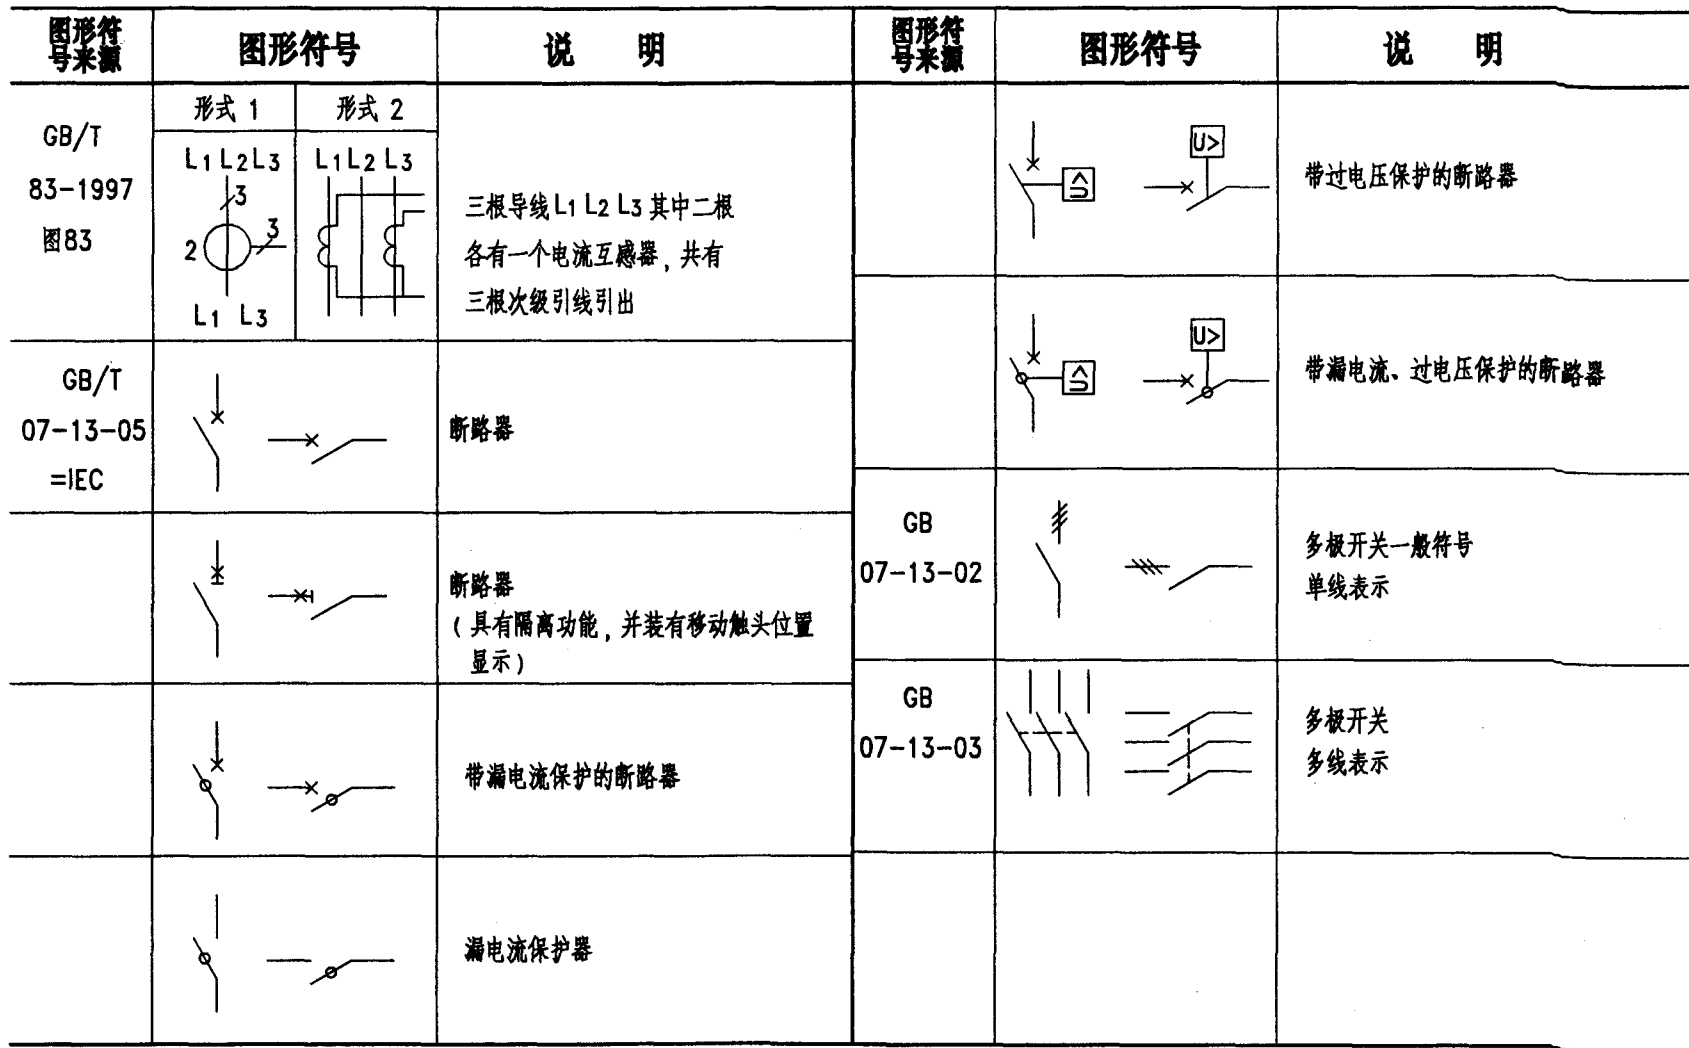 图形符
号来源
图形符号
说 明
GB/T
83-1997
图83
形式 1
形式 2
L1 L2 L3
3
2
3
L1 L3
L1 L2 L3
三根导线 L1 L2 L3 其中二根
各有一个电流互感器，共有
三根次级引线引出
GB/T
07-13-05
=IEC
断路器
断路器
(具有隔离功能，并装有移动触头位置
显示)
带漏电流保护的断路器
漏电流保护器
图形符
号来源
图形符号
说 明
U>
U>
带过电压保护的断路器
U>
U>
带漏电流、过电压保护的断路器
GB
07-13-02
多极开关一般符号
单线表示
GB
07-13-03
多极开关
多线表示